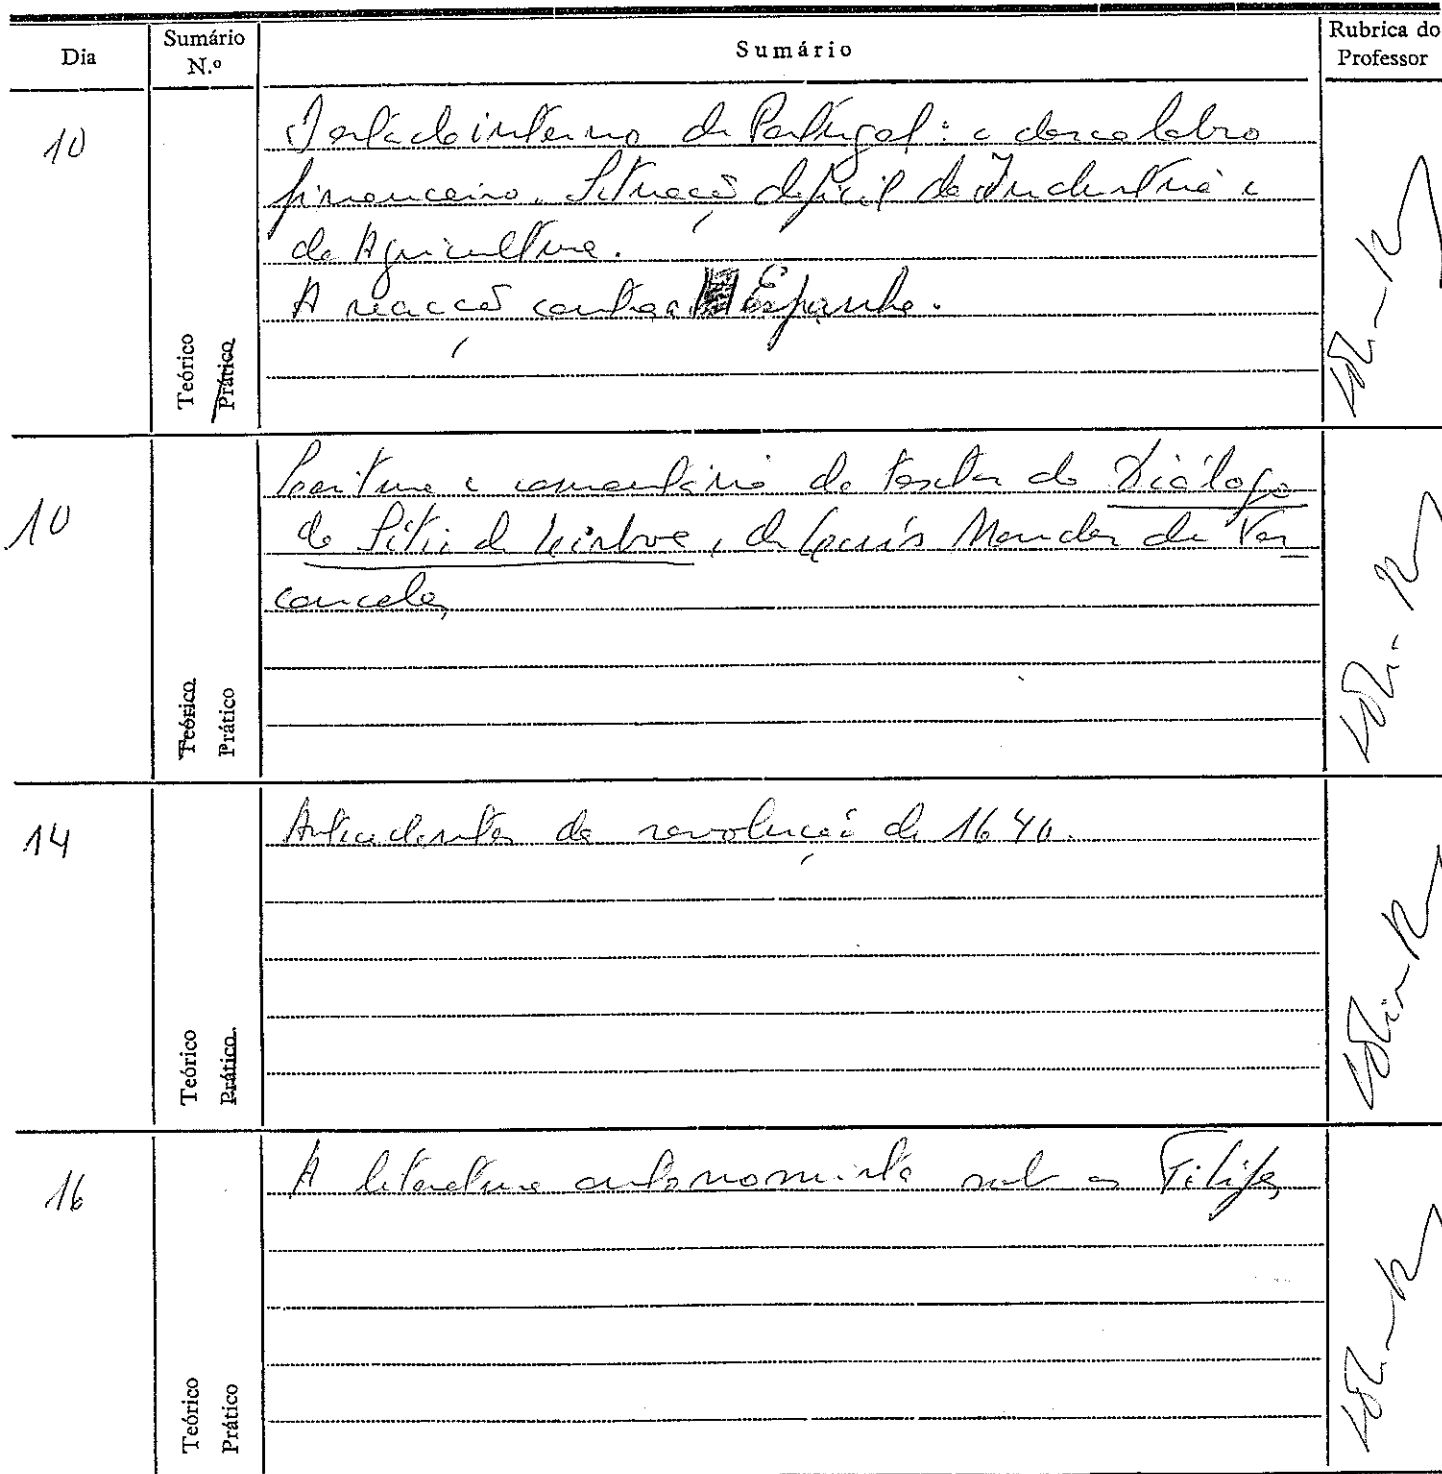 Dia Sumário N.º Sumário Rubrica do Professor
10
O estado interno de Portugal: o descalabro
financeiro. Situação difícil da Industria e
da Agricultura.
A reacção contra a Espanha.
Teórico
Prático
10
Leitura e comentário de textos do Diálogo
do Sítio de Lisboa, de Luís Mendes de Vas-
concelos
Teórico
Prático
14
Antecedentes da revolução de 1640.
Teórico
Prático
16
A literatura autonomista sob os Filipes
Teórico
Prático